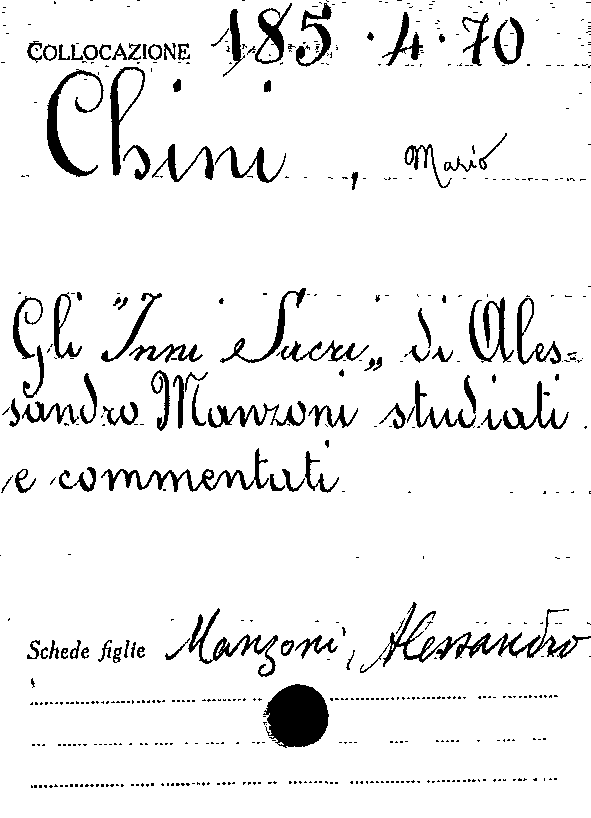 COLLOCAZIONE 185.4.70
Chini, Mario
Gli "Inni Sacri„ di Ales=
sandro Manzoni studiati
e commentati
Schede figlie Manzoni, Alessandro